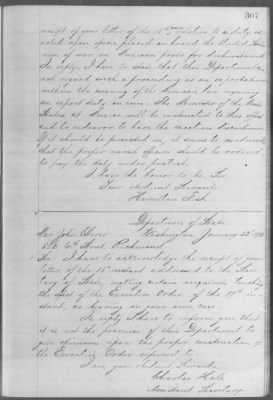 307
receipt of your letter of the 15th relative to a duty ex-
acted upon specie placed on board the United States
men of war in Mexican ports for disbursement.
In reply, I have to state that this Department
not regard such a proceeding as an exportation
within the meaning of the Mexican law requiring
an export duty on coin. The Minister of the United
States at Mexico will be instructed to this effect
and to endeavor to have the exaction discontinued.
If it should be persisted in, it seems to
that the proper naval officers should be ordered
to pay the duty under protest.
I have the honor to be, Sir
Your obedient Servant,
Hamilton Fish.
Department of State,
Washington January 23d
Mr. John Oliver
4th Street, Richmond
Sir: I have to acknowledge the receipt of your
letter of the 18th instant addressed to the Secre-
tary of State, making certain inquiries touching
the of the Executive Order of the 17th in-
stant, as bearing on your own case.
In reply I have to inform you that
it is not the province of this Department to
give opinions upon the proper construction of
the Executive Order referred to.
I am your obed't Servant
Charles Hale
Assistant Secretary.